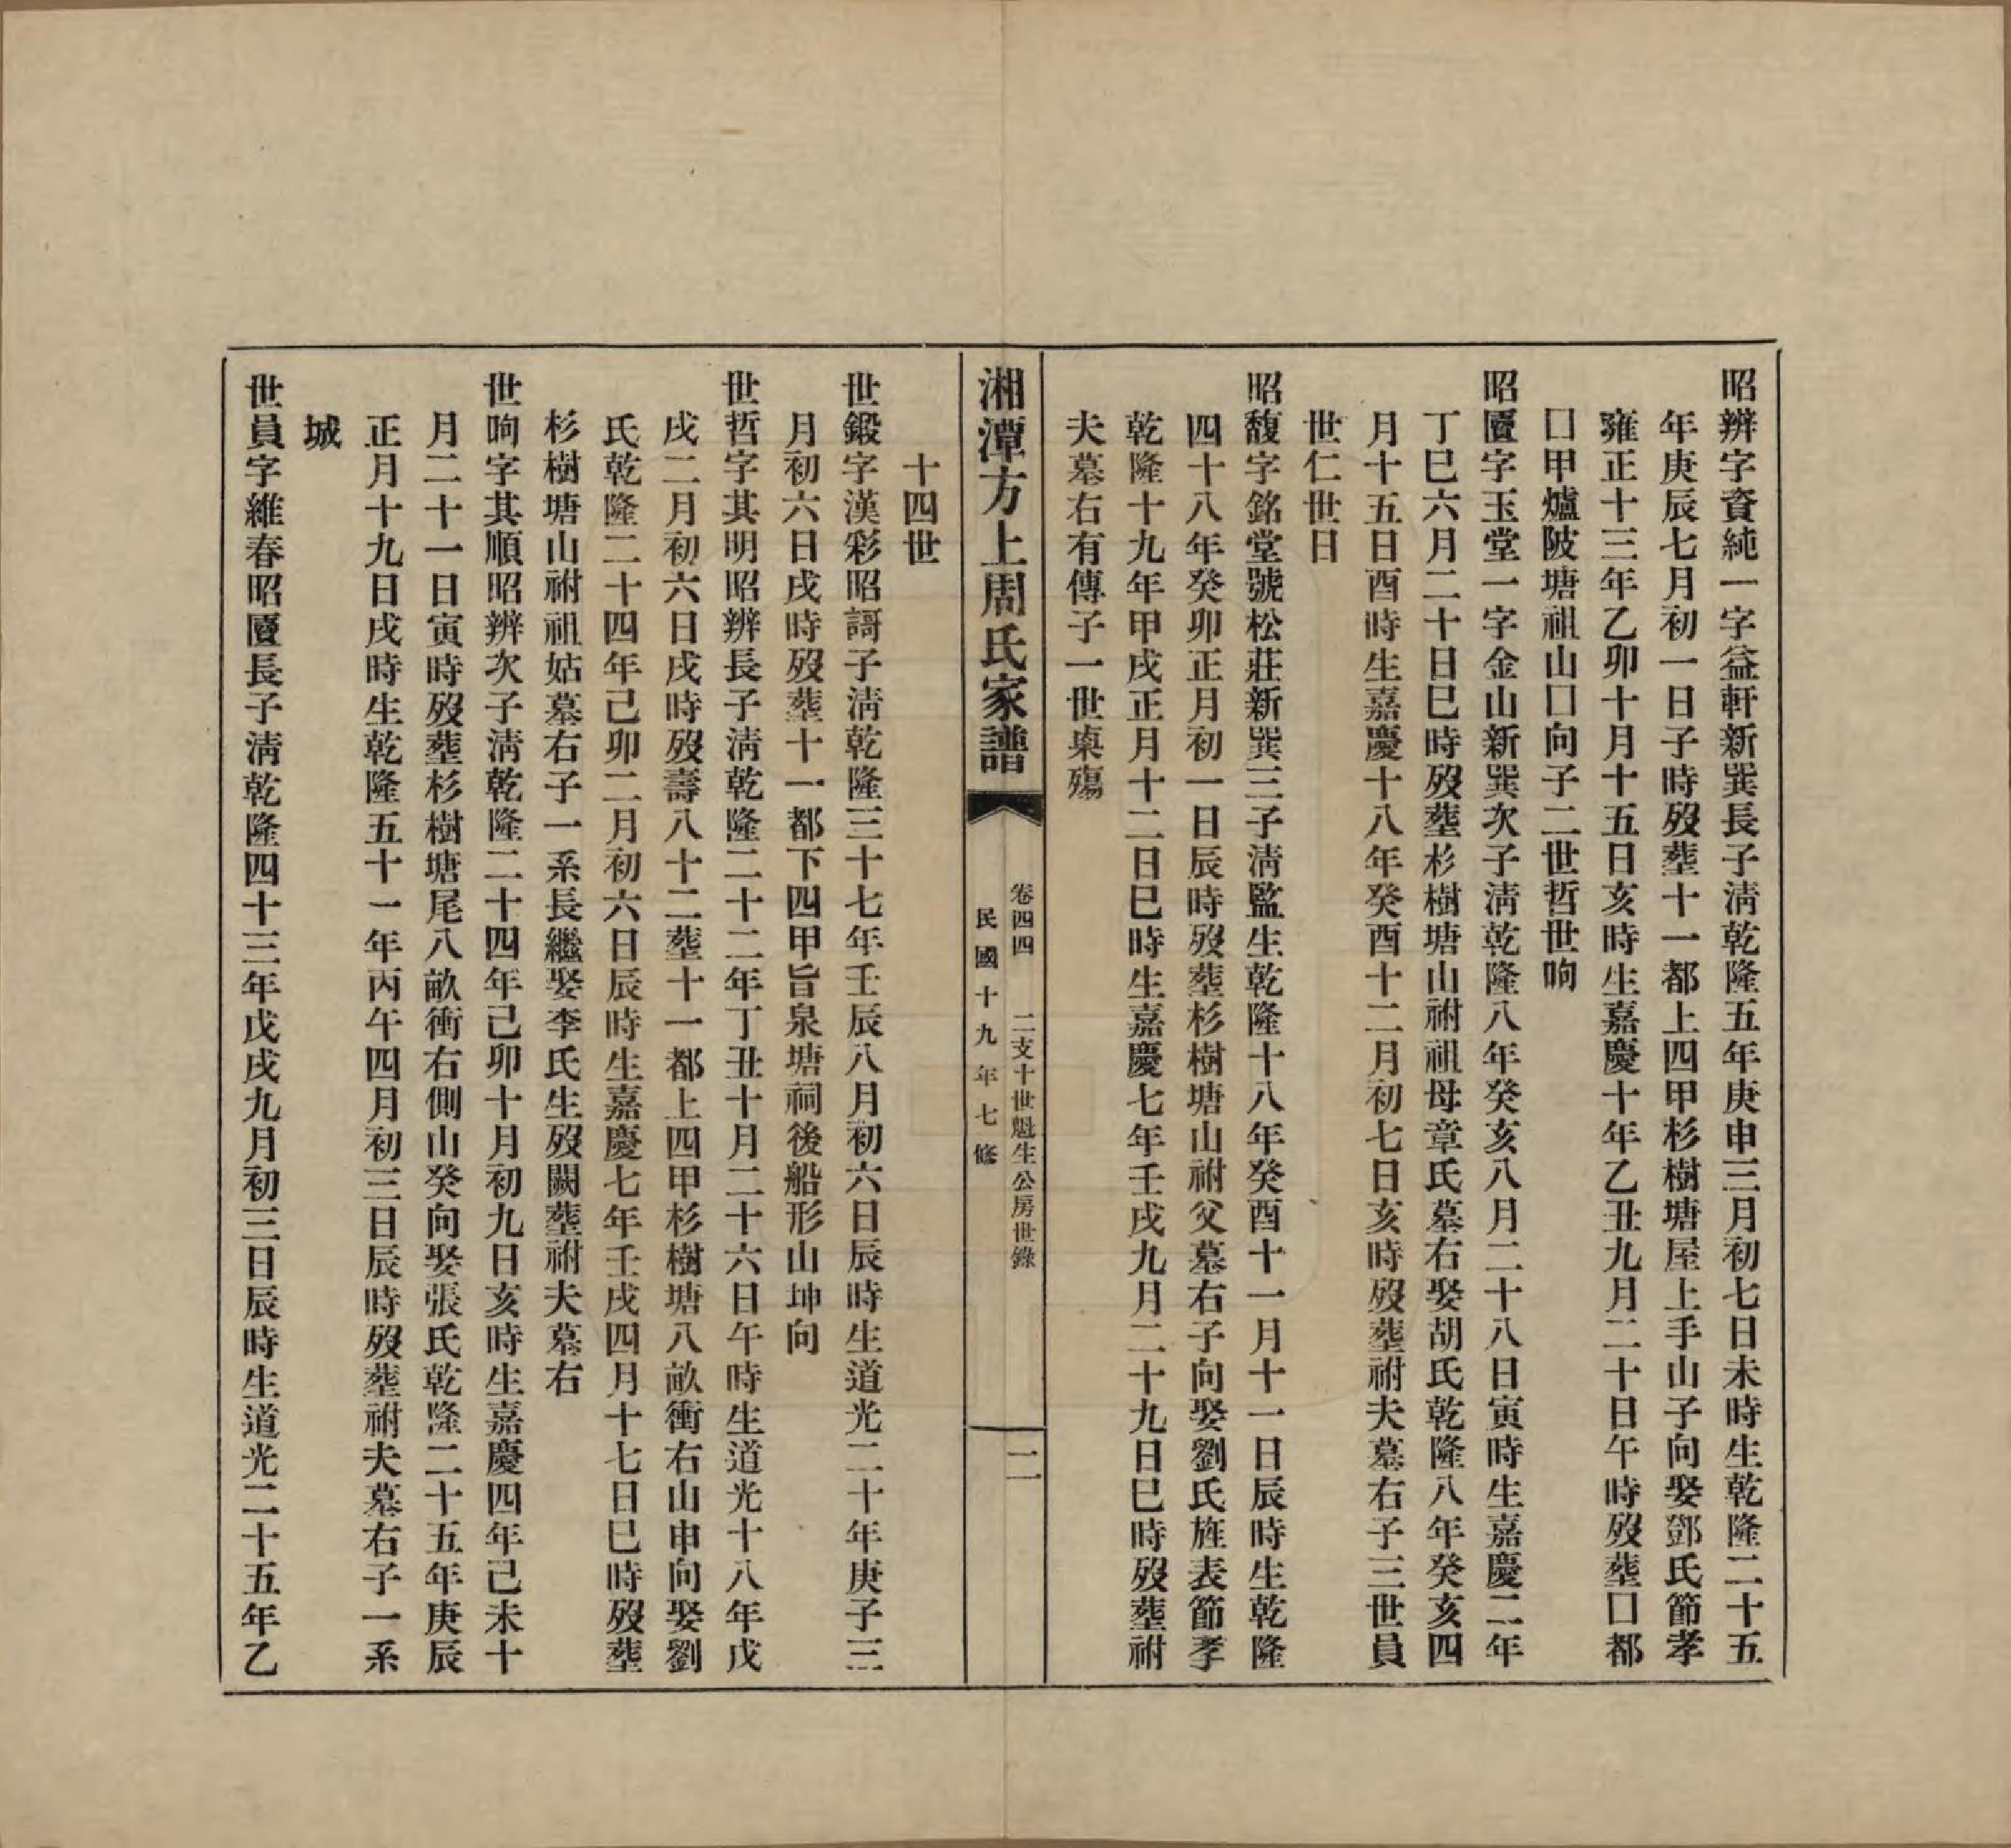 昭辨字資純一字益軒新巽長子淸乾隆五年庚申三月初七日未時生乾隆二十五
年庚辰七月初一日子時歿葬十一都上四甲杉樹塘屋上手山子向娶鄧氏節孝
雍正十三年乙卯十月十五日亥時生嘉慶十年乙丑九月二十日午時歿葬囗都
囗甲爐陂塘祖山囗向子二世哲世晌
昭匵字玉堂一字金山新巽次子淸乾隆八年癸亥八月二十八日寅時生嘉慶二年
丁巳六月二十日巳時歿葬杉樹塘山祔祖母章氏墓右娶胡氏乾隆八年癸亥四
月十五日酉時生嘉慶十八年癸酉十二月初七日亥時歿葬祔夫墓右子三世員
世仁世日
昭馥字銘堂號松莊新巽三子淸監生乾隆十八年癸酉十一月十一日辰時生乾隆
四十八年癸卯正月初一日辰時歿葬杉樹塘山祔父墓右子向娶劉氏旌表節孝
乾隆十九年甲戌正月十二日巳時生嘉慶七年壬戌九月二十九日巳時歿葬祔
夫墓右有傳子一世㮚殤
湘潭方上周氏家譜
卷四四 二支十世魁生公房世錄
民國十九年七修
二
十四世
世鍛字漢彩昭謌子淸乾隆三十七年壬辰八月初六日辰時生道光二十年庚子三
月初六日戌時歿葬十一都下四甲旨泉塘祠後船形山坤向
世哲字其明昭辨長子淸乾隆二十二年丁丑十月二十六日午時生道光十八年戊
戌二月初六日戌時歿壽八十二葬十一都上四甲杉樹塘八畝衝右山申向娶劉
氏乾隆二十四年己卯二月初六日辰時生嘉慶七年壬戌四月十七日巳時歿葬
杉樹塘山祔祖姑墓右子一系長繼娶李氏生歿闕葬祔夫墓右
世晌字其順昭辨次子淸乾隆二十四年己卯十月初九日亥時生嘉慶四年己未十
月二十一日寅時歿葬杉樹塘尾八畝衝右側山癸向娶張氏乾隆二十五年庚辰
正月十九日戌時生乾隆五十一年丙午四月初三日辰時歿葬祔夫墓右子一系
城
世員字維春昭匵長子淸乾隆四十三年戊戌九月初三日辰時生道光二十五年乙